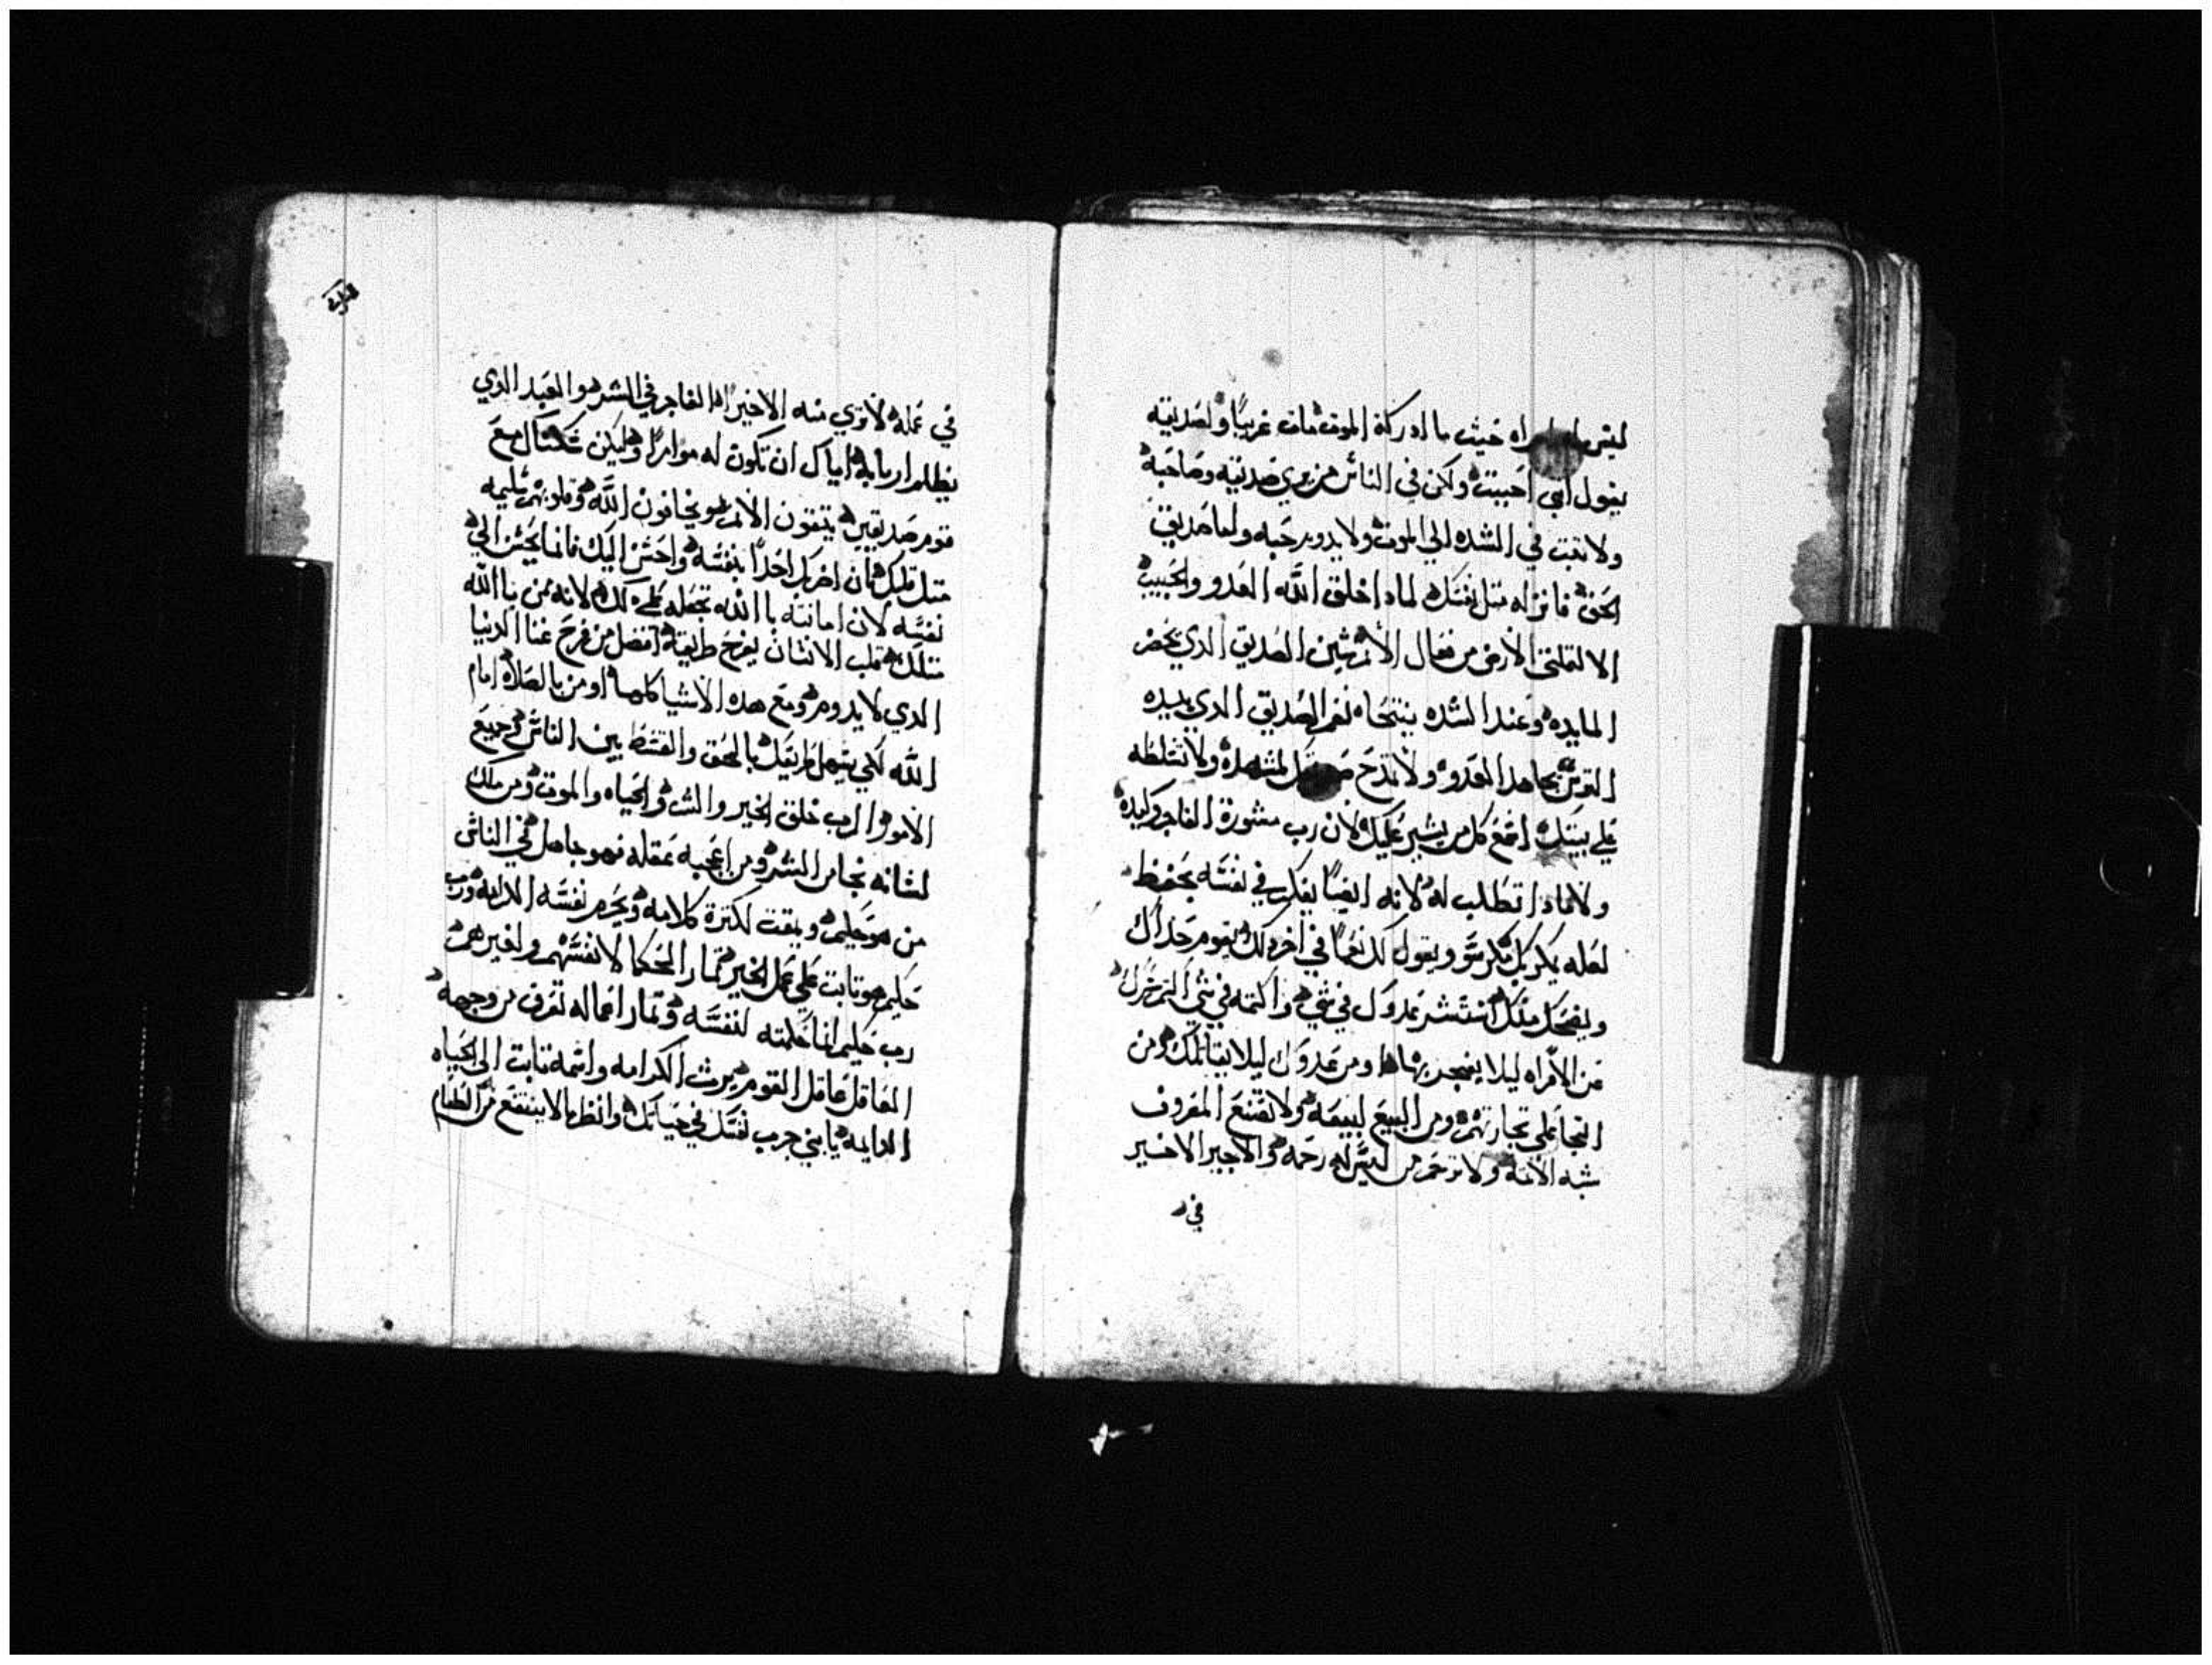 ليس امراه خيث ما ادركة الموت مات غريبًا ولصديقه
يقول اني احببت ولكن في الناس من يري صديقه وصاحبه
ولا تبت في الشده الي الموت ولا يدوم حبه واما صديق
الحق فانزله متل نفسك لمادا خلق الله العدو والحبيب
الا لتمتلئ الارض من فعال الاثم شين الصديق الدي يحضر
المايده وعند الشده يتنحاه نعم الصديق الدي بيده
الترس يجاهد العدو ولا تمدح لمشهده ولا تسلطه
علي بيتك اقمع كل من يشير عليك لان رب مشورة الفاجر وكيده
ولا مادا تطلب له لانه ايضًا يفكر في نفسه يحفظ
لعله يكر بك مكر سو ويقول لك نعمًا في اخر دلك يقوم حداك
ويضحك منك استشر عدوك في شي واكتمه في شي اكتم سرك
عن الامراه ليلا يفجر بها ومن عدوك ليلا يقاتلك ومن
التجا علي تجارتهم ومن البيع لبيعه ولا تصنع المعروف
شبه الاثمه ولا ترحم من ليس له رحمه والاجير الاخير
في
في عمله لا تري منه الا خيرًا الفاجر في الشر هو العبد الدي
يظلم اربابه اياك ان تكون له موامرًا وليكن شكتال مع
قوم صديقين يتقون الاثم ويخافون الله وقلوبهم سليمه
متل قلبك فان اخر بك احدًا بنفسه واحسن اليك فانما يحسن الي
نفسه لان امانته باالله تجعله علي دلك لانه مومن باالله
متلك قلب الانسان يفرح طريقه افضل من فرح غنا الدنيا
الدي لا يدوم ومع هده الاشيا كلها اومن بالصلاه امام
الله لكي يسهل طريقك بالحق والقسط بين الناس وجميع
الامور الرب خلق الخير والشر والحياه والموت ومن ملك
لسانه نجا من الشر ومن اعجبه عقله فهو جاهل في الناس
من هو حليم ويقت لكترة كلامه ويحرم نفسه الكرامه ورب
حليم هو تابت علي عمل الخير تمار الحكما لانفسهم ولغيرهم
رب حكيم انما حكمته لنفسه وتمار اعماله تعرف من وجهه
العاقل عاقل القوم يرث الكرامه واسمه تابت الي الحياه
الدايمه يا بني جرب نفسك في حياتك وانظر ما لا ينتفع من الطعام